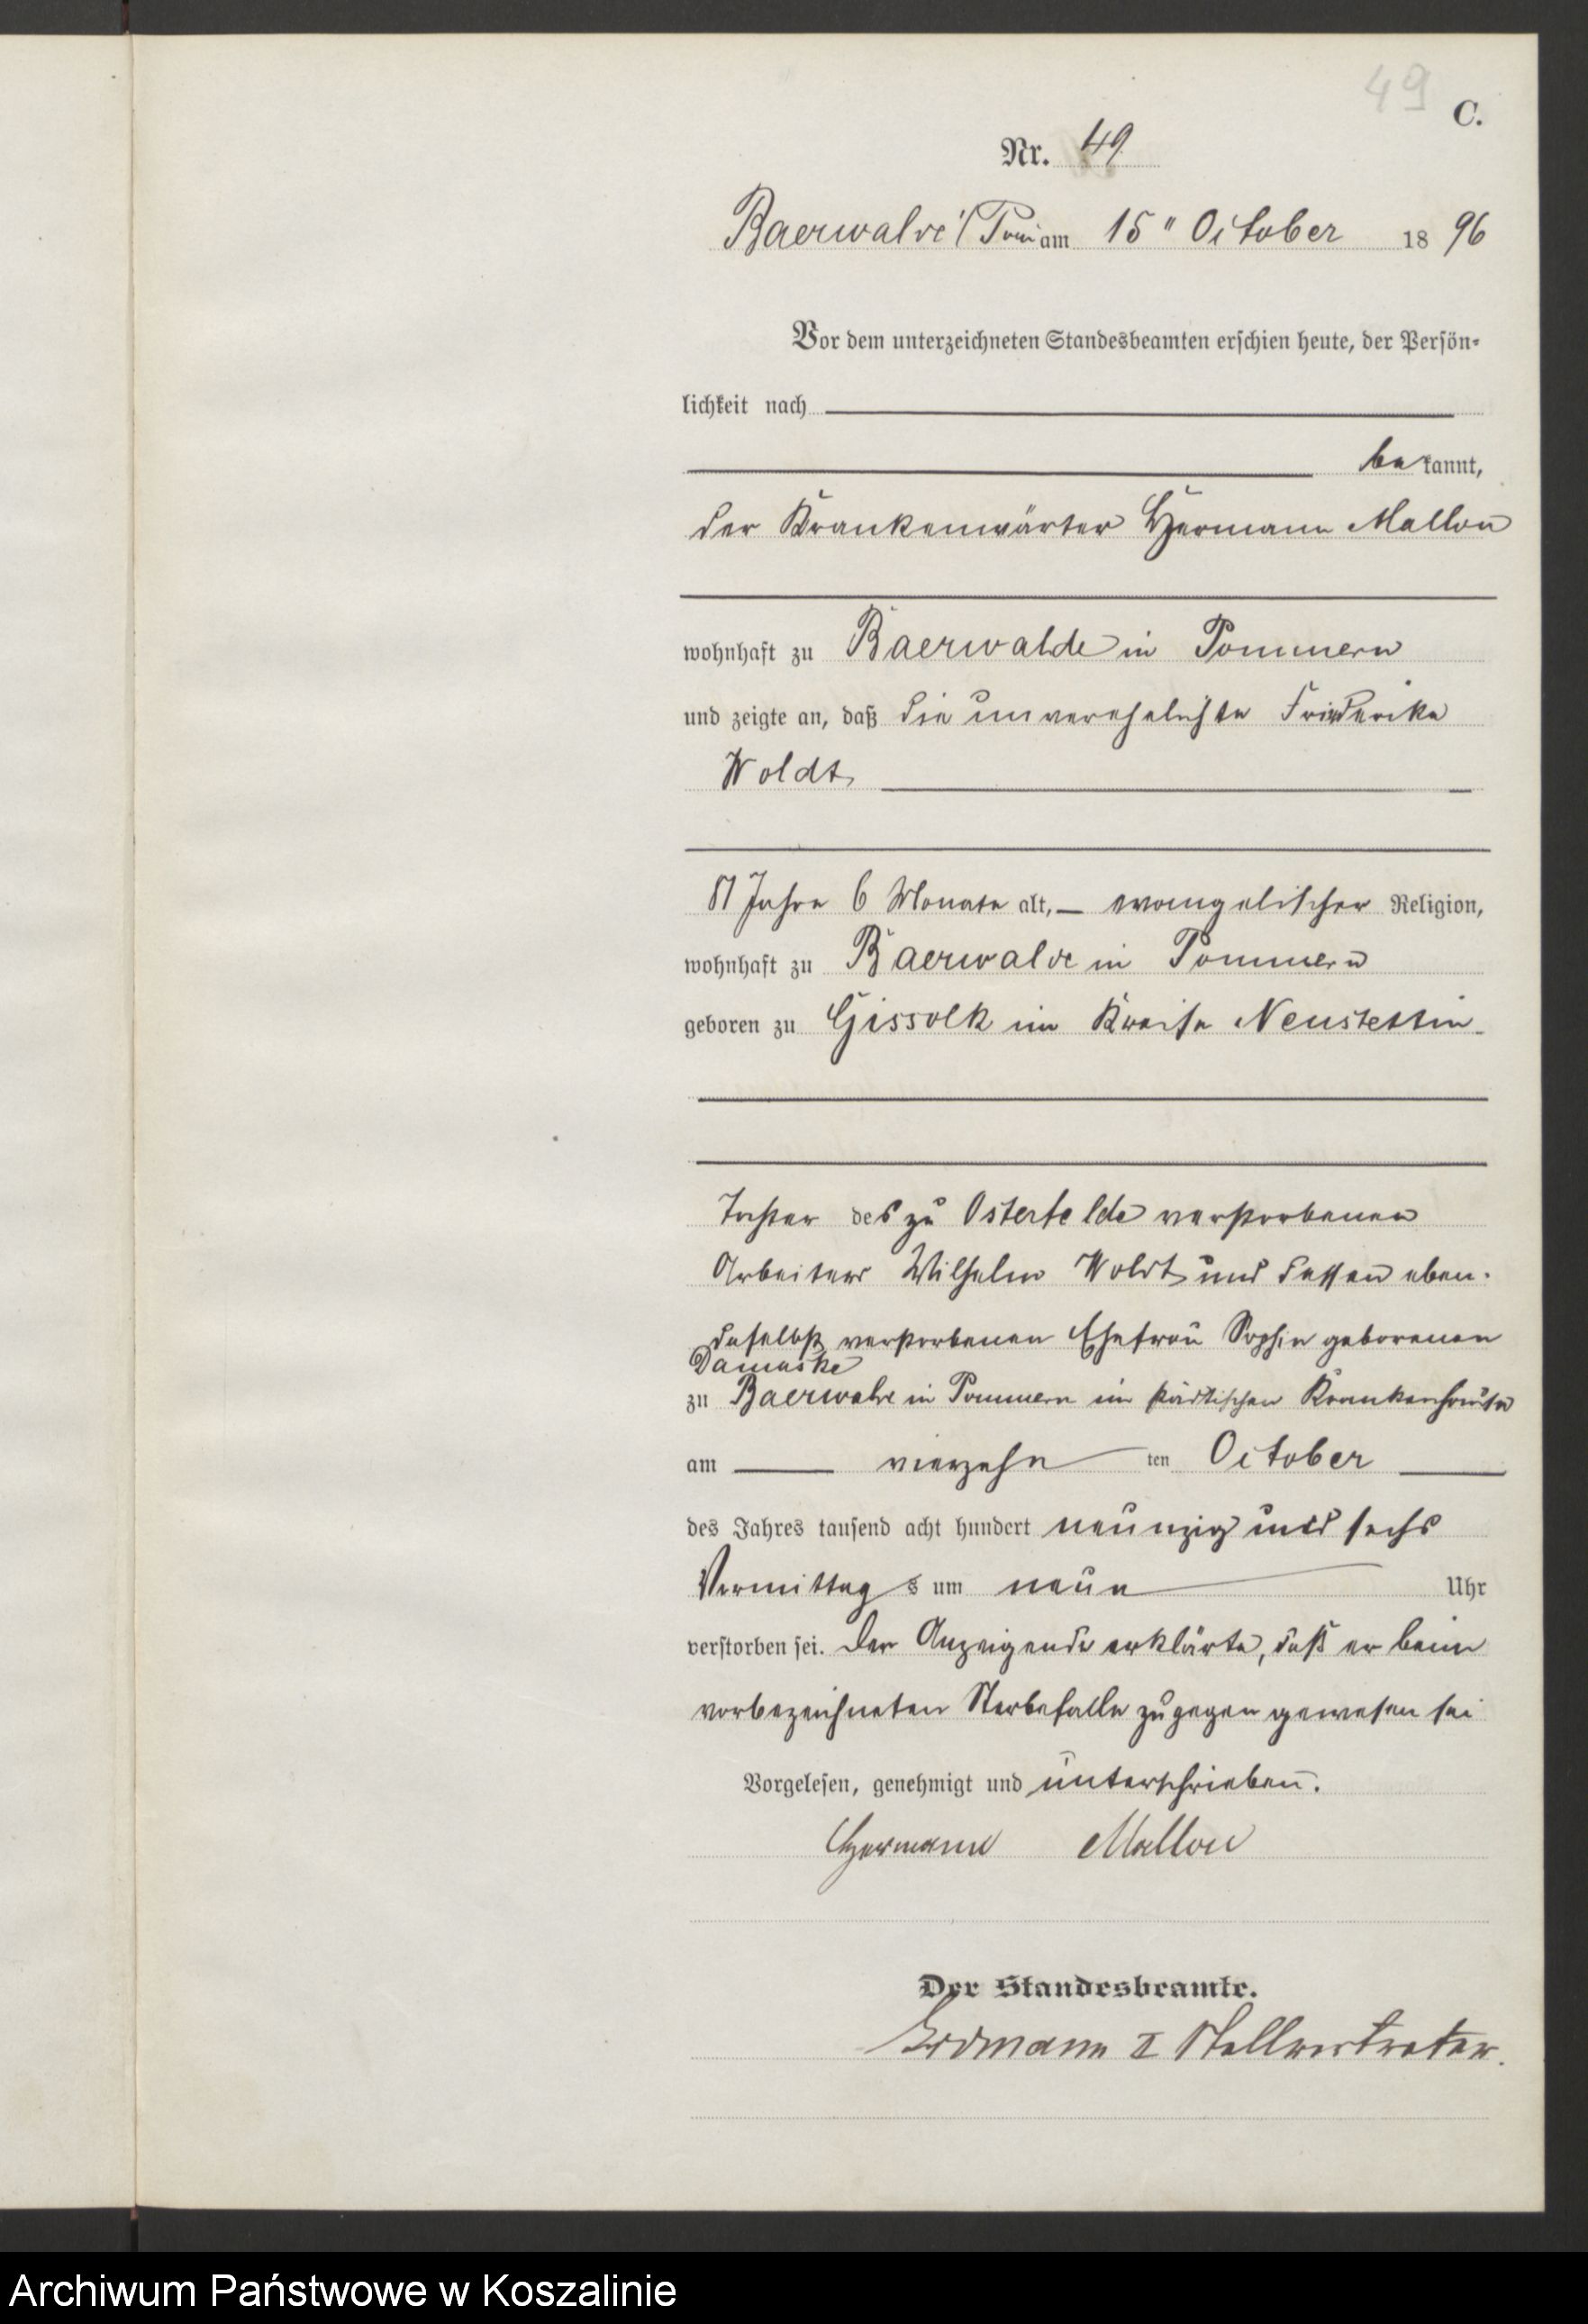 49
C.
Nr. 49
Baerwalde i/Pom am 15" October 1896
Vor dem unterzeichneten Standesbeamten erschien heute, der Persön-
lichkeit nach
bekannt,
der Krankenwärter Hermann Mallon
wohnhaft zu Baerwalde in Pommern
und zeigte an, daß die unverehelichte Friederike
Woldt,
Jahre 6 Monate alt, evangelischer Religion,
wohnhaft zu Baerwalde in Pommern
geboren zu Gissolk im Kreise Neustettin
Tochter des zu Osterfelde verstorbenen
Arbeiters Wilhelm Woldt und dessen eben-
daselbst verstorbenen Ehefrau Sophie geborenen
Damaske
zu Baerwalde in Pommern im städtischen Krankenhause
am vierzehn ten October
des Jahres tausend acht hundert neunzig und sechs
Vormittags um neun Uhr
verstorben sei. Der Anzeigende erklärte, daß er beim
vorbezeichneten Sterbefalle zugegen gewesen sei
Vorgelesen, genehmigt und unterschrieben.
Hermann Mallon
Der Standesbeamte.
Erdmann II Stellvertreter.
Archiwum Państwowe w Koszalinie